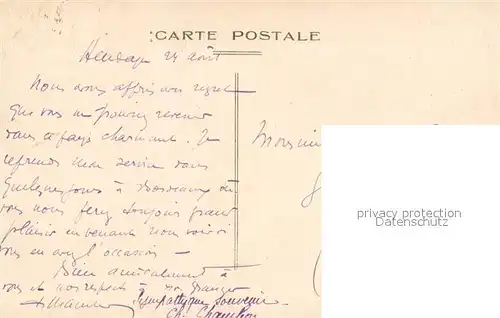 CARTE POSTALE
Hendaye 24 août
Nous avons appris avec regret
que vous ne pouviez revenir
dans ce pays charmant. Je
reprends mon service dans
quelques jours à Bordeaux où
vous nous ferez toujours grand
plaisir en venant nous voir si
vous en avez l'occasion —
Bien amicalement à
vous et nos respects à
Sympathique souvenir
Monsieur
privacy protection
Datenschutz